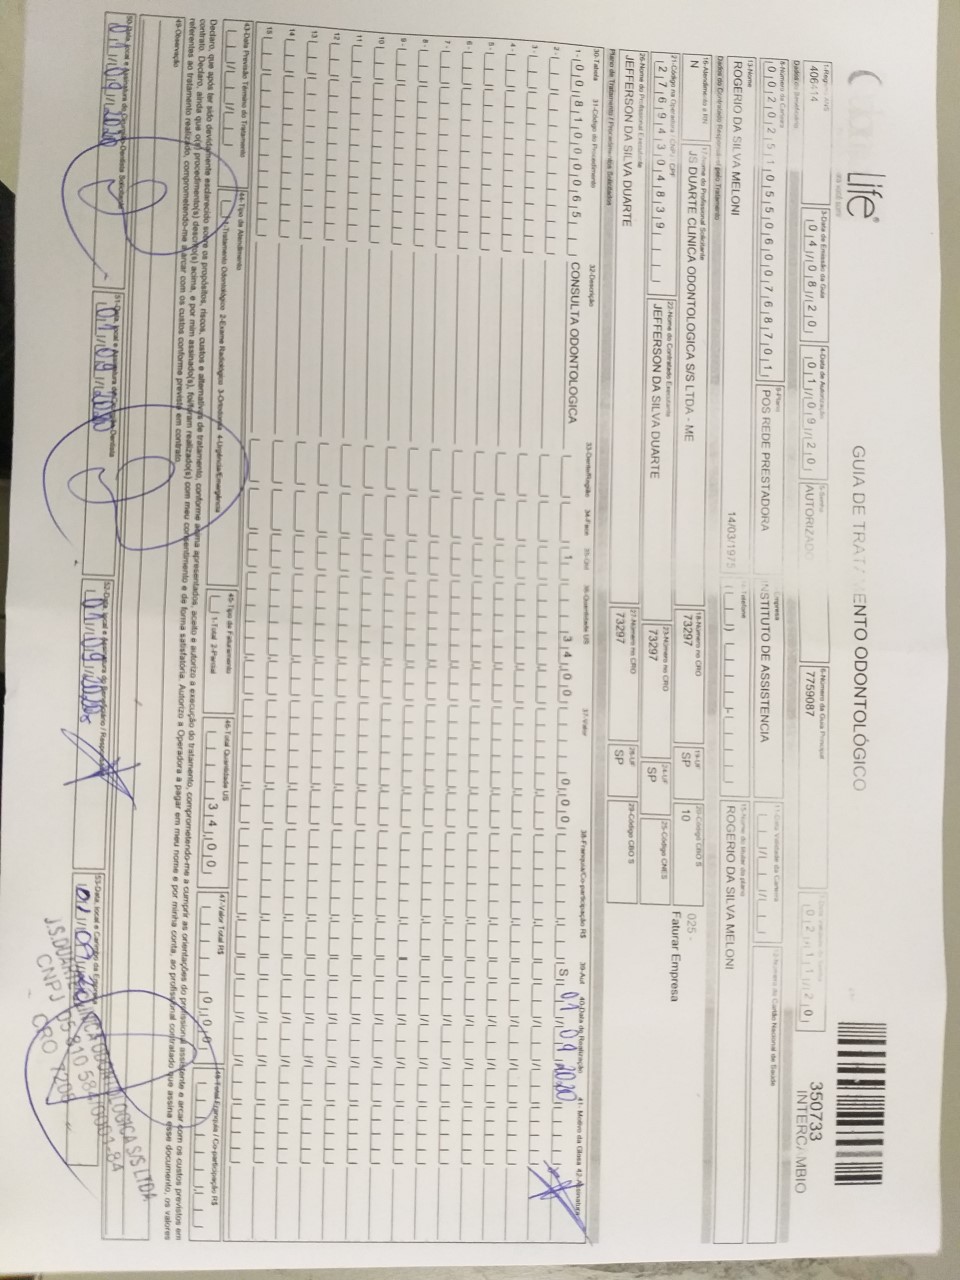 Life®
GUIA DE TRATAMENTO ODONTOLÓGICO
350733
INTERCÂMBIO
1-Registro ANS
406414
3-Data de Emissão da Guia
04/08/20
4-Data de Autorização
01/09/20
5-Senha
AUTORIZADO
6-Número da Guia Principal
7759087
02/11/20
8-Número da Carteira
00202510550600768701
9-Plano
POS REDE PRESTADORA
Empresa
INSTITUTO DE ASSISTENCIA
11-Data Validade da Carteira
12-Número do Cartão Nacional de Saúde
13-Nome
ROGERIO DA SILVA MELONI
14/03/1975
14-Telefone
15-Nome do titular do plano
ROGERIO DA SILVA MELONI
Dados do Contratado Responsável pelo Tratamento
16-Atendimento a RN
N
17-Nome do Profissional Solicitante
JS DUARTE CLINICA ODONTOLOGICA S/S LTDA - ME
18-Número no CRO
73297
19-UF
SP
20-Código CBO S
10
025 -
Faturar Empresa
21-Código na Operadora / CNPJ / CPF
27694304839
22-Nome do Contratado Executante
JEFFERSON DA SILVA DUARTE
23-Número no CRO
73297
24-UF
SP
25-Código CNES
26-Nome do Profissional Executante
JEFFERSON DA SILVA DUARTE
27-Número no CRO
73297
28-UF
SP
29-Código CBO S
Plano de Tratamento / Procedimentos Solicitados
30-Tabela 31-Código do Procedimento 32-Descrição 33-Dente/Região 34-Face 35-Qtd 36-Quantidade US 37-Valor 38-Franquia/Co-participação R$ 39-Aut 40-Data de Realização 41-Motivo da Glosa 42-Assinatura
1- 00 81000065 CONSULTA ODONTOLOGICA 1 34,00 0,00 S 01/09/2020
2-
3-
4-
5-
6-
7-
8-
9-
10
11
12
13
14
15
43-Data Previsão Término do Tratamento
44-Tipo de Atendimento
1-Tratamento Odontológico 2-Exame Radiológico 3-Ortodontia 4-Urgência/Emergência
45-Tipo de Faturamento
1-Total 2-Parcial
46-Total Quantidade US
34,00
47-Valor Total R$
0,00
48-Total Franquia / Co-participação R$
Declaro, que após ter sido devidamente esclarecido sobre os propósitos, riscos, custos e alternativas de tratamento, conforme acima apresentados, aceito e autorizo a execução do tratamento, comprometendo-me a cumprir as orientações do profissional assistente e arcar com os custos previstos em
contrato. Declaro, ainda que o(s) procedimento(s) descrito(s) acima, e por mim assinado(s), foi/foram realizado(s) com meu consentimento e de forma satisfatória. Autorizo a Operadora a pagar em meu nome e por minha conta, ao profissional contratado que assina esse documento, os valores
referentes ao tratamento realizado, comprometendo-me a arcar com os custos conforme previsto em contrato.
49-Observação
50-Data, local e Assinatura do Cirurgião-Dentista Solicitante
01/09/2020
51-Data, local e Assinatura do Cirurgião-Dentista
01/09/2020
52-Data, local e Assinatura do Beneficiário / Responsável
01/09/2020
53-Data, local e Carimbo da Empresa
J.S.DUARTE CLINICA ODONTOLOGICA S/S LTDA
CNPJ 05 810 584/0001-84